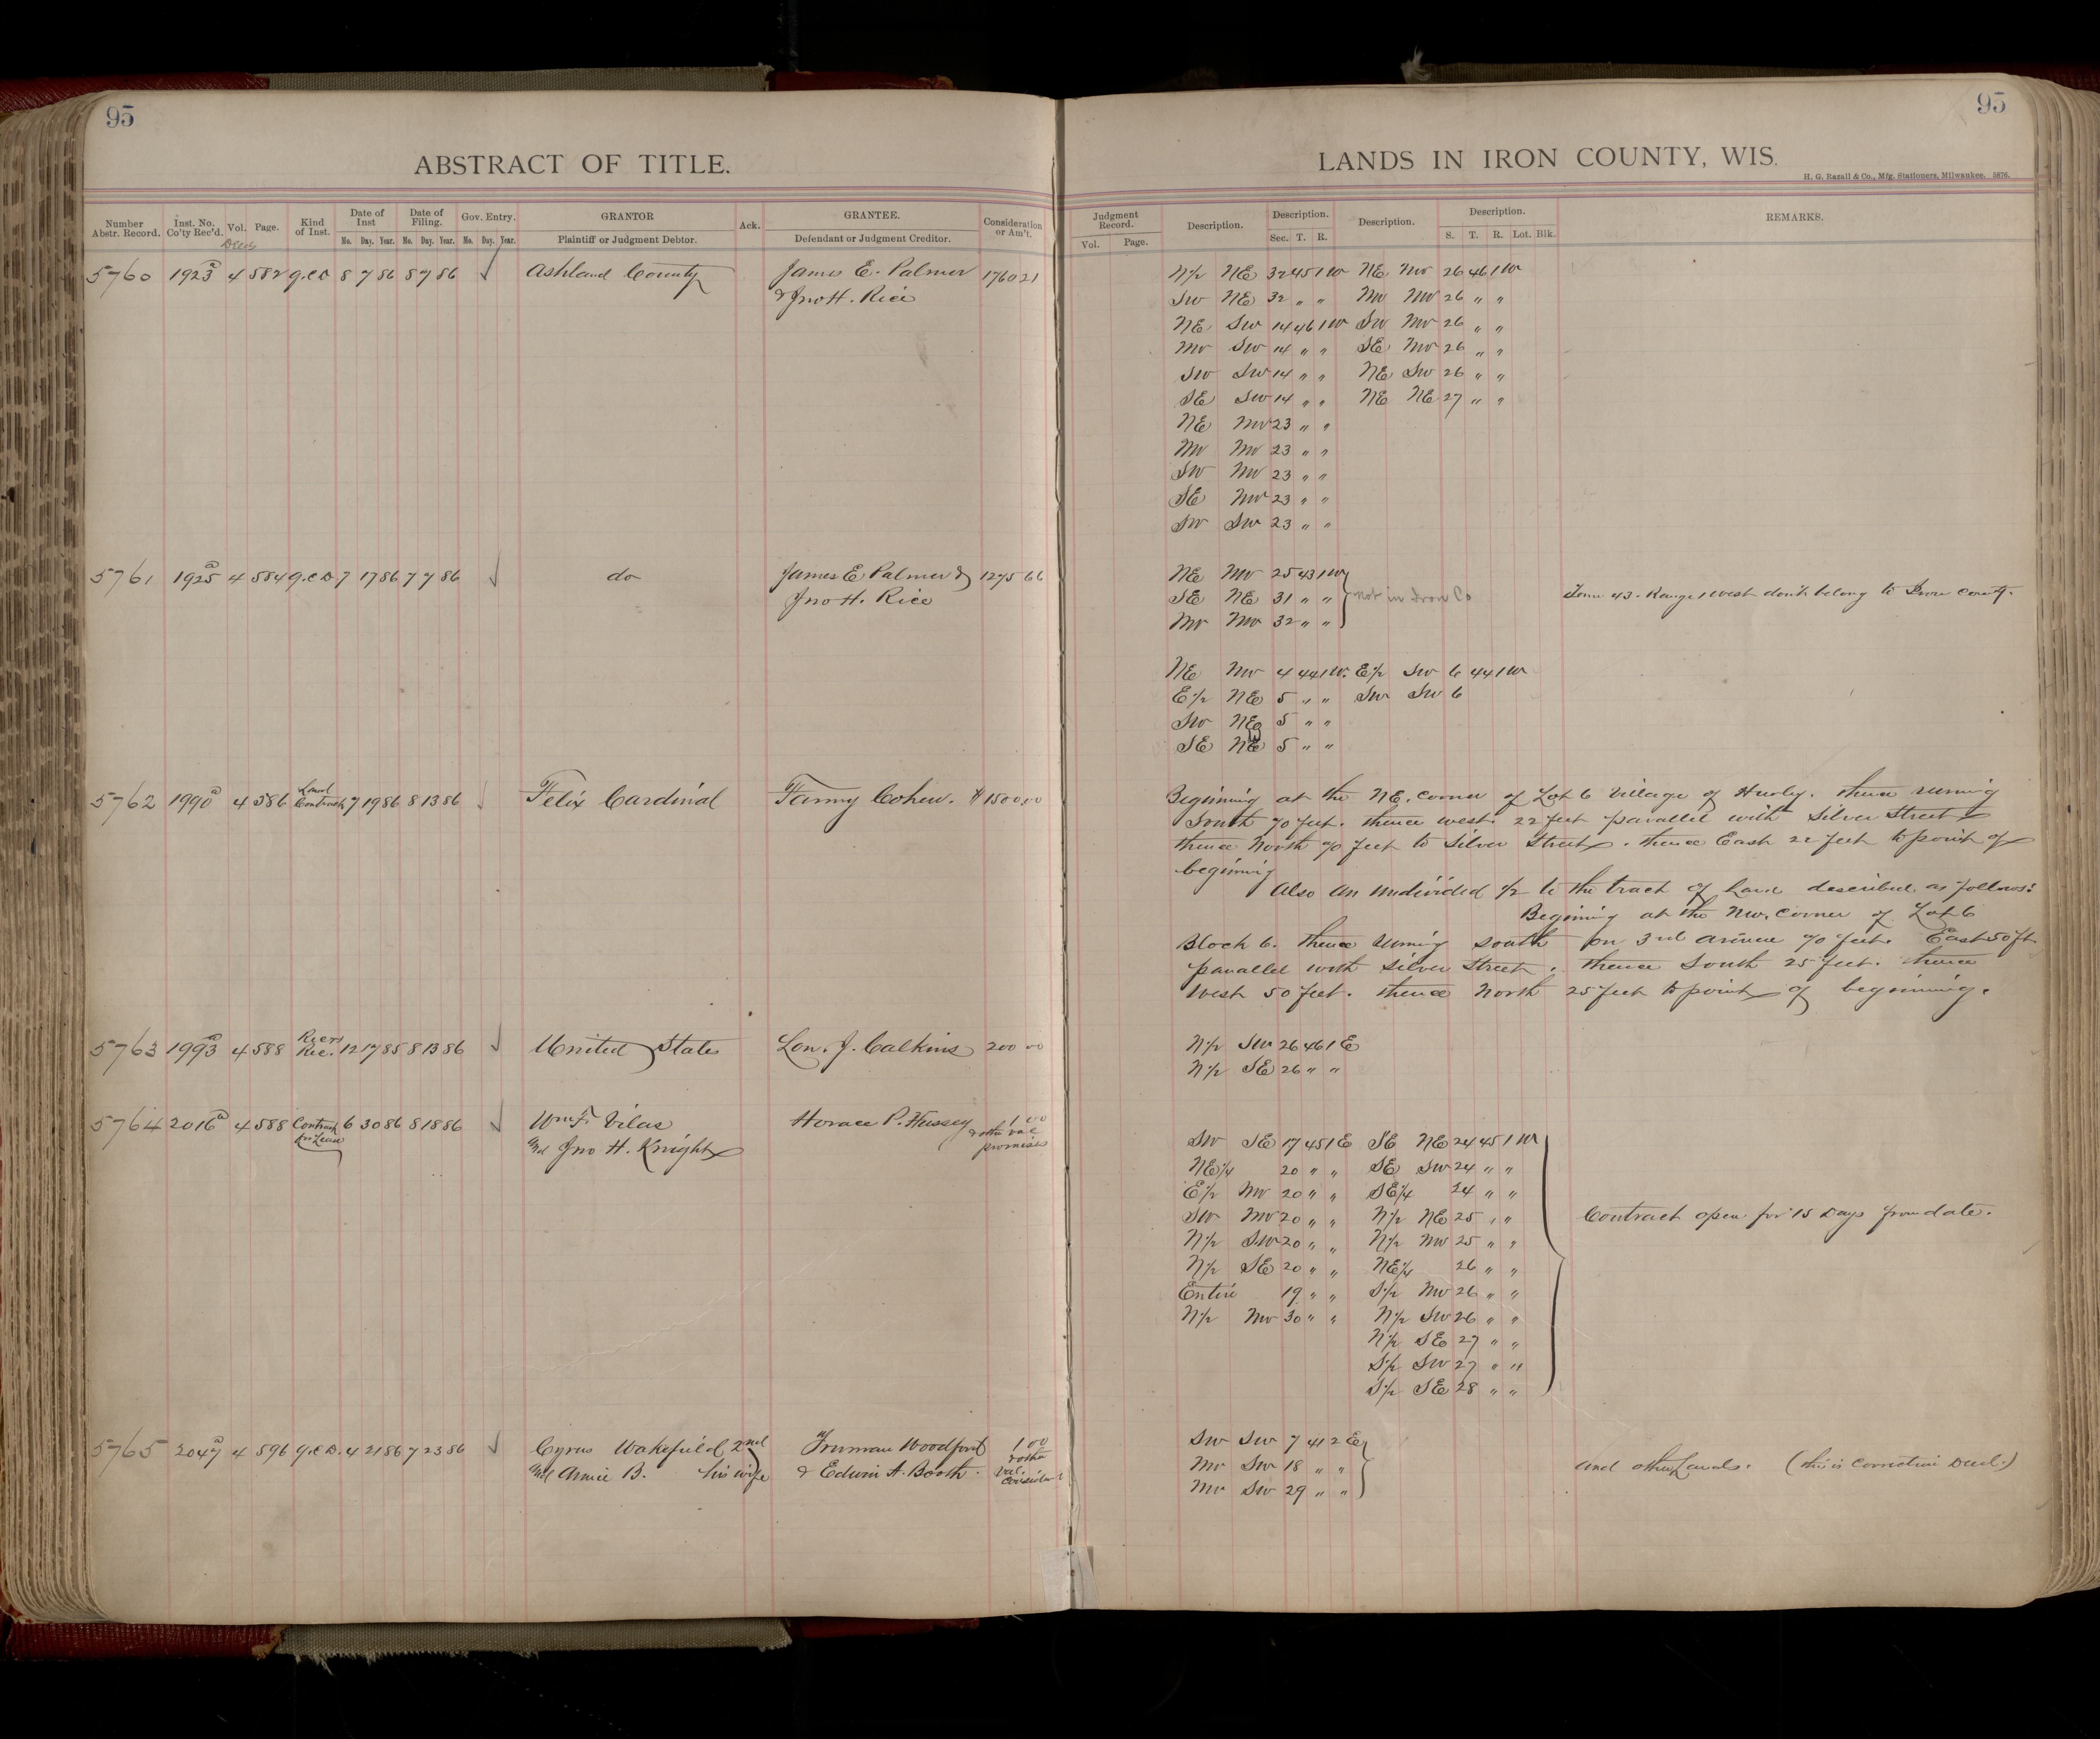 95
ABSTRACT OF TITLE.
Number Abstr. Record. Inst. No. Co'ty Rec'd. Vol. Page. Kind of Inst. Date of Inst Date of Filing. Gov. Entry. GRANTOR Ack. GRANTEE. Consideration or Am't.
Deeds Mo. Day. Year. Mo. Day. Year. Mo. Day. Year. Plaintiff or Judgment Debtor. Defendant or Judgment Creditor.
5760 1923a 4 582 q.c.D 8 7 86 8 7 86 ✓ Ashland County James E. Palmer 1760 21
& Jno H. Rice
5761 1925a 4 584 q.c.D. 7 17 86 7 7 86 ✓ do James E Palmer & 1275 66
Jno H. Rice
5762 1990a 4 586 Land Contract 7 19 86 8 13 86 ✓ Felix Cardinal Fanny Cohen. $1500.00
5763 1993a 4 588 Rec. 12 17 85 8 13 86 ✓ United States Lon. J. Calkins 200 00
5764 2016a 4 588 Contract for Lease 6 30 86 8 18 86 ✓ Wm F. Vilas Horace P. Hussey 1 00
and Jno H. Knight & other val promises
5765 2047a 4 596 q.c.D. 4 21 86 7 23 86 ✓ Cyrus Wakefield 2nd Truman Woodford 1 00
and Annie B. his wife & Edwin A. Booth. & other val. consider
95
LANDS IN IRON COUNTY, WIS.
H. G. Razall & Co., Mfg. Stationers, Milwaukee. 5876.
Judgment Record. Description. Description. Description. Description. REMARKS.
Vol. Page. Sec. T. R. S. T. R. Lot. Blk.
N½ NE 32 45 1W NE NW 26 46 1W
SW NE 32 " " NW NW 26 " "
NE SW 14 46 1W SW NW 26 " "
NW SW 14 " " SE NW 26 " "
SW SW 14 " " NE SW 26 " "
SE SW 14 " " NE NE 27 " "
NE NW 23 " "
NW NW 23 " "
SW NW 23 " "
SE NW 23 " "
SW SW 23 " "
NE NW 25 43 1W
SE NE 31 " " not in Iron Co Town 43. Range 1 West don't belong to Iron County.
NW NW 32 " "
NE NW 4 44 1W. E½ SW 6 44 1W
E½ NE 5 " " SW SW 6
SW NE 5 " "
SE NE 5 " "
Beginning at the NE. corner of Lot 6 Village of Hurly. thence runing
South 70 feet. thence west. 22 feet parallel with Silver Street
thence North 70 feet to Silver Street. thence East 22 feet to point of
begining
Also an undivided ½ to the tract of Land described as follows:
Begining at the NW. corner of Lot 6
Block 6. thence runing south on 3rd avenue 70 feet. East 50 ft
parallel with Silver Street. thence South 25 feet. thence
West 50 feet. thence North 25 feet to point of beginning.
N½ SW 26 46 1 E
N½ SE 26 " "
SW SE 17 45 1 E SE NE 24 45 1 W
NE¼ 20 " " SE SW 24 " "
E½ NW 20 " " SE¼ 24 " "
SW NW 20 " " N½ NE 25 " " Contract open for 15 Days from date.
N½ SW 20 " " N½ NW 25 " "
N½ SE 20 " " NE¼ 26 " "
Entire 19 " " S½ NW 26 " "
N½ NW 30 " " N½ SW 26 " "
N½ SE 27 " "
S½ SW 27 " "
S½ SE 28 " "
SW SW 7 41 2 E
NW SW 18 " " and other Lands. (this is Correction Deed.)
NW SW 29 " "